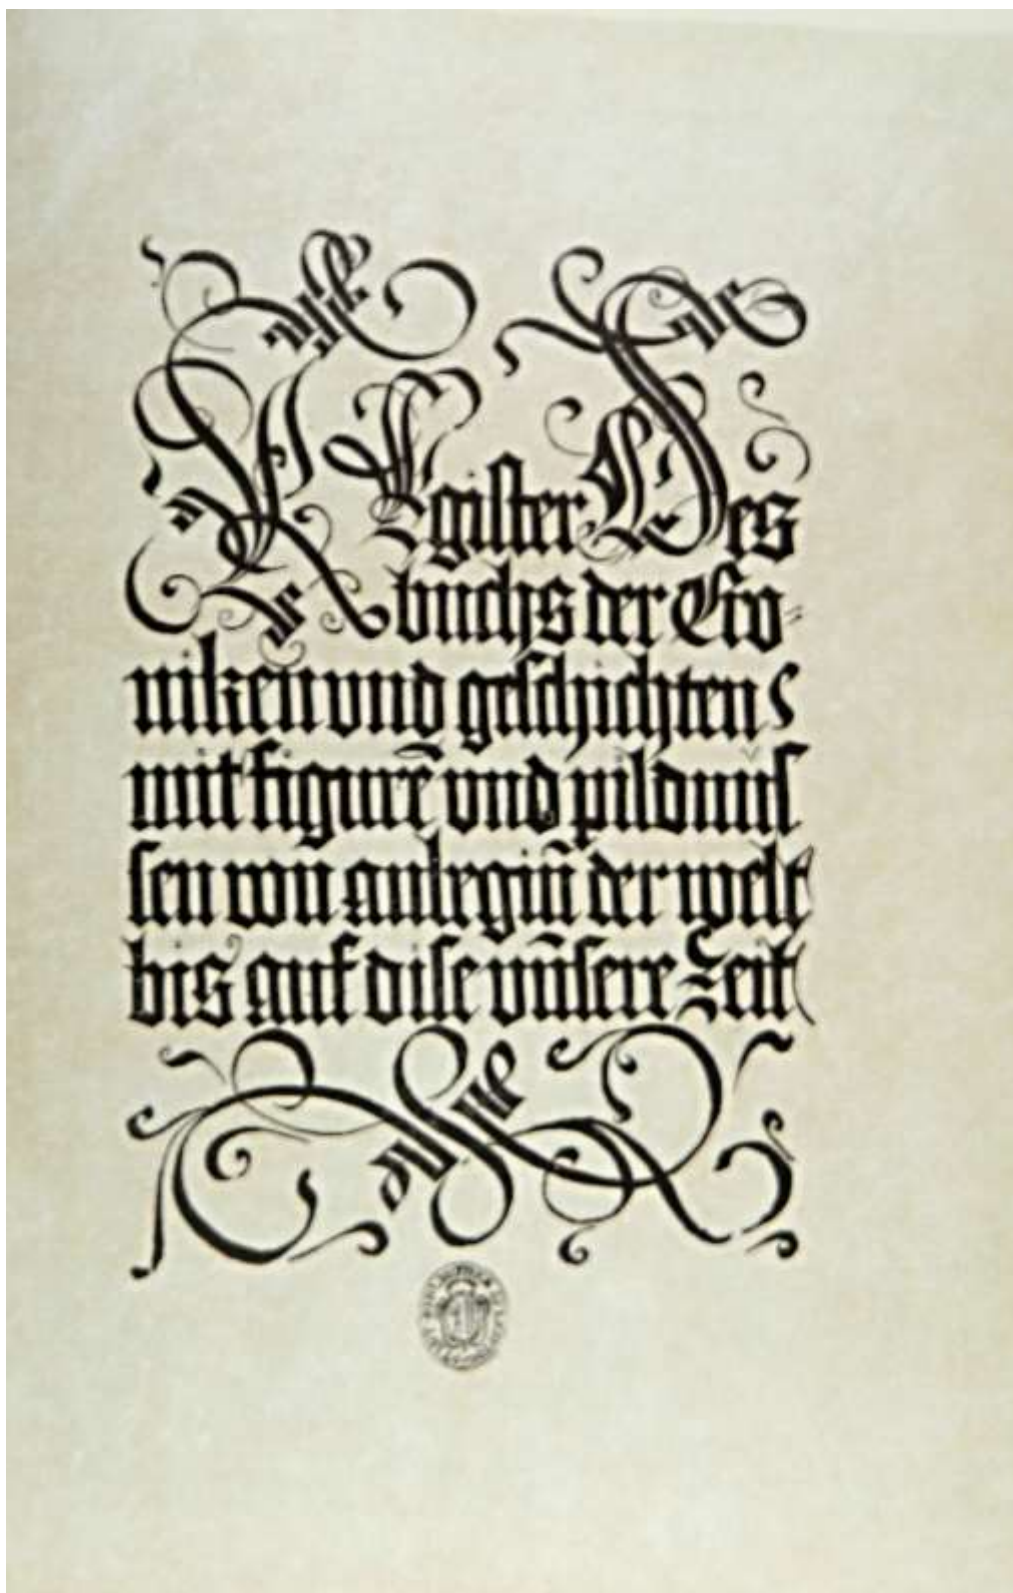 REgister Des
buchs der Cro-
niken vnd geschichten
mit figurẽ vnd pildnus-
sen von anbegiñ der welt
bis auf dise vñsere Zeit